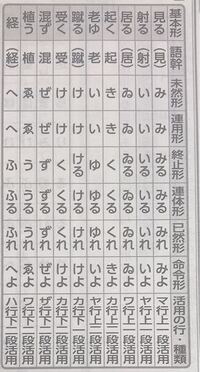 基本形 語幹 未然形 連用形 終止形 連体形 已然形 命令形 活用の行・種類
見る (見) み み みる みる みれ みよ マ行上一段活用
射る (射) い い いる いる いれ いよ ヤ行上一段活用
居る (居) ゐ ゐ ゐる ゐる ゐれ ゐよ ワ行上一段活用
起く 起 き き く くる くれ きよ カ行上二段活用
老ゆ 老 い い ゆ ゆる ゆれ いよ ヤ行上二段活用
蹴る (蹴) け け ける ける けれ けよ カ行下一段活用
受く 受 け け く くる くれ けよ カ行下二段活用
混ず 混 ぜ ぜ ず ずる ずれ ぜよ ザ行下二段活用
植う 植 ゑ ゑ う うる うれ ゑよ ワ行下二段活用
経 (経) へ へ ふ ふる ふれ へよ ハ行下二段活用